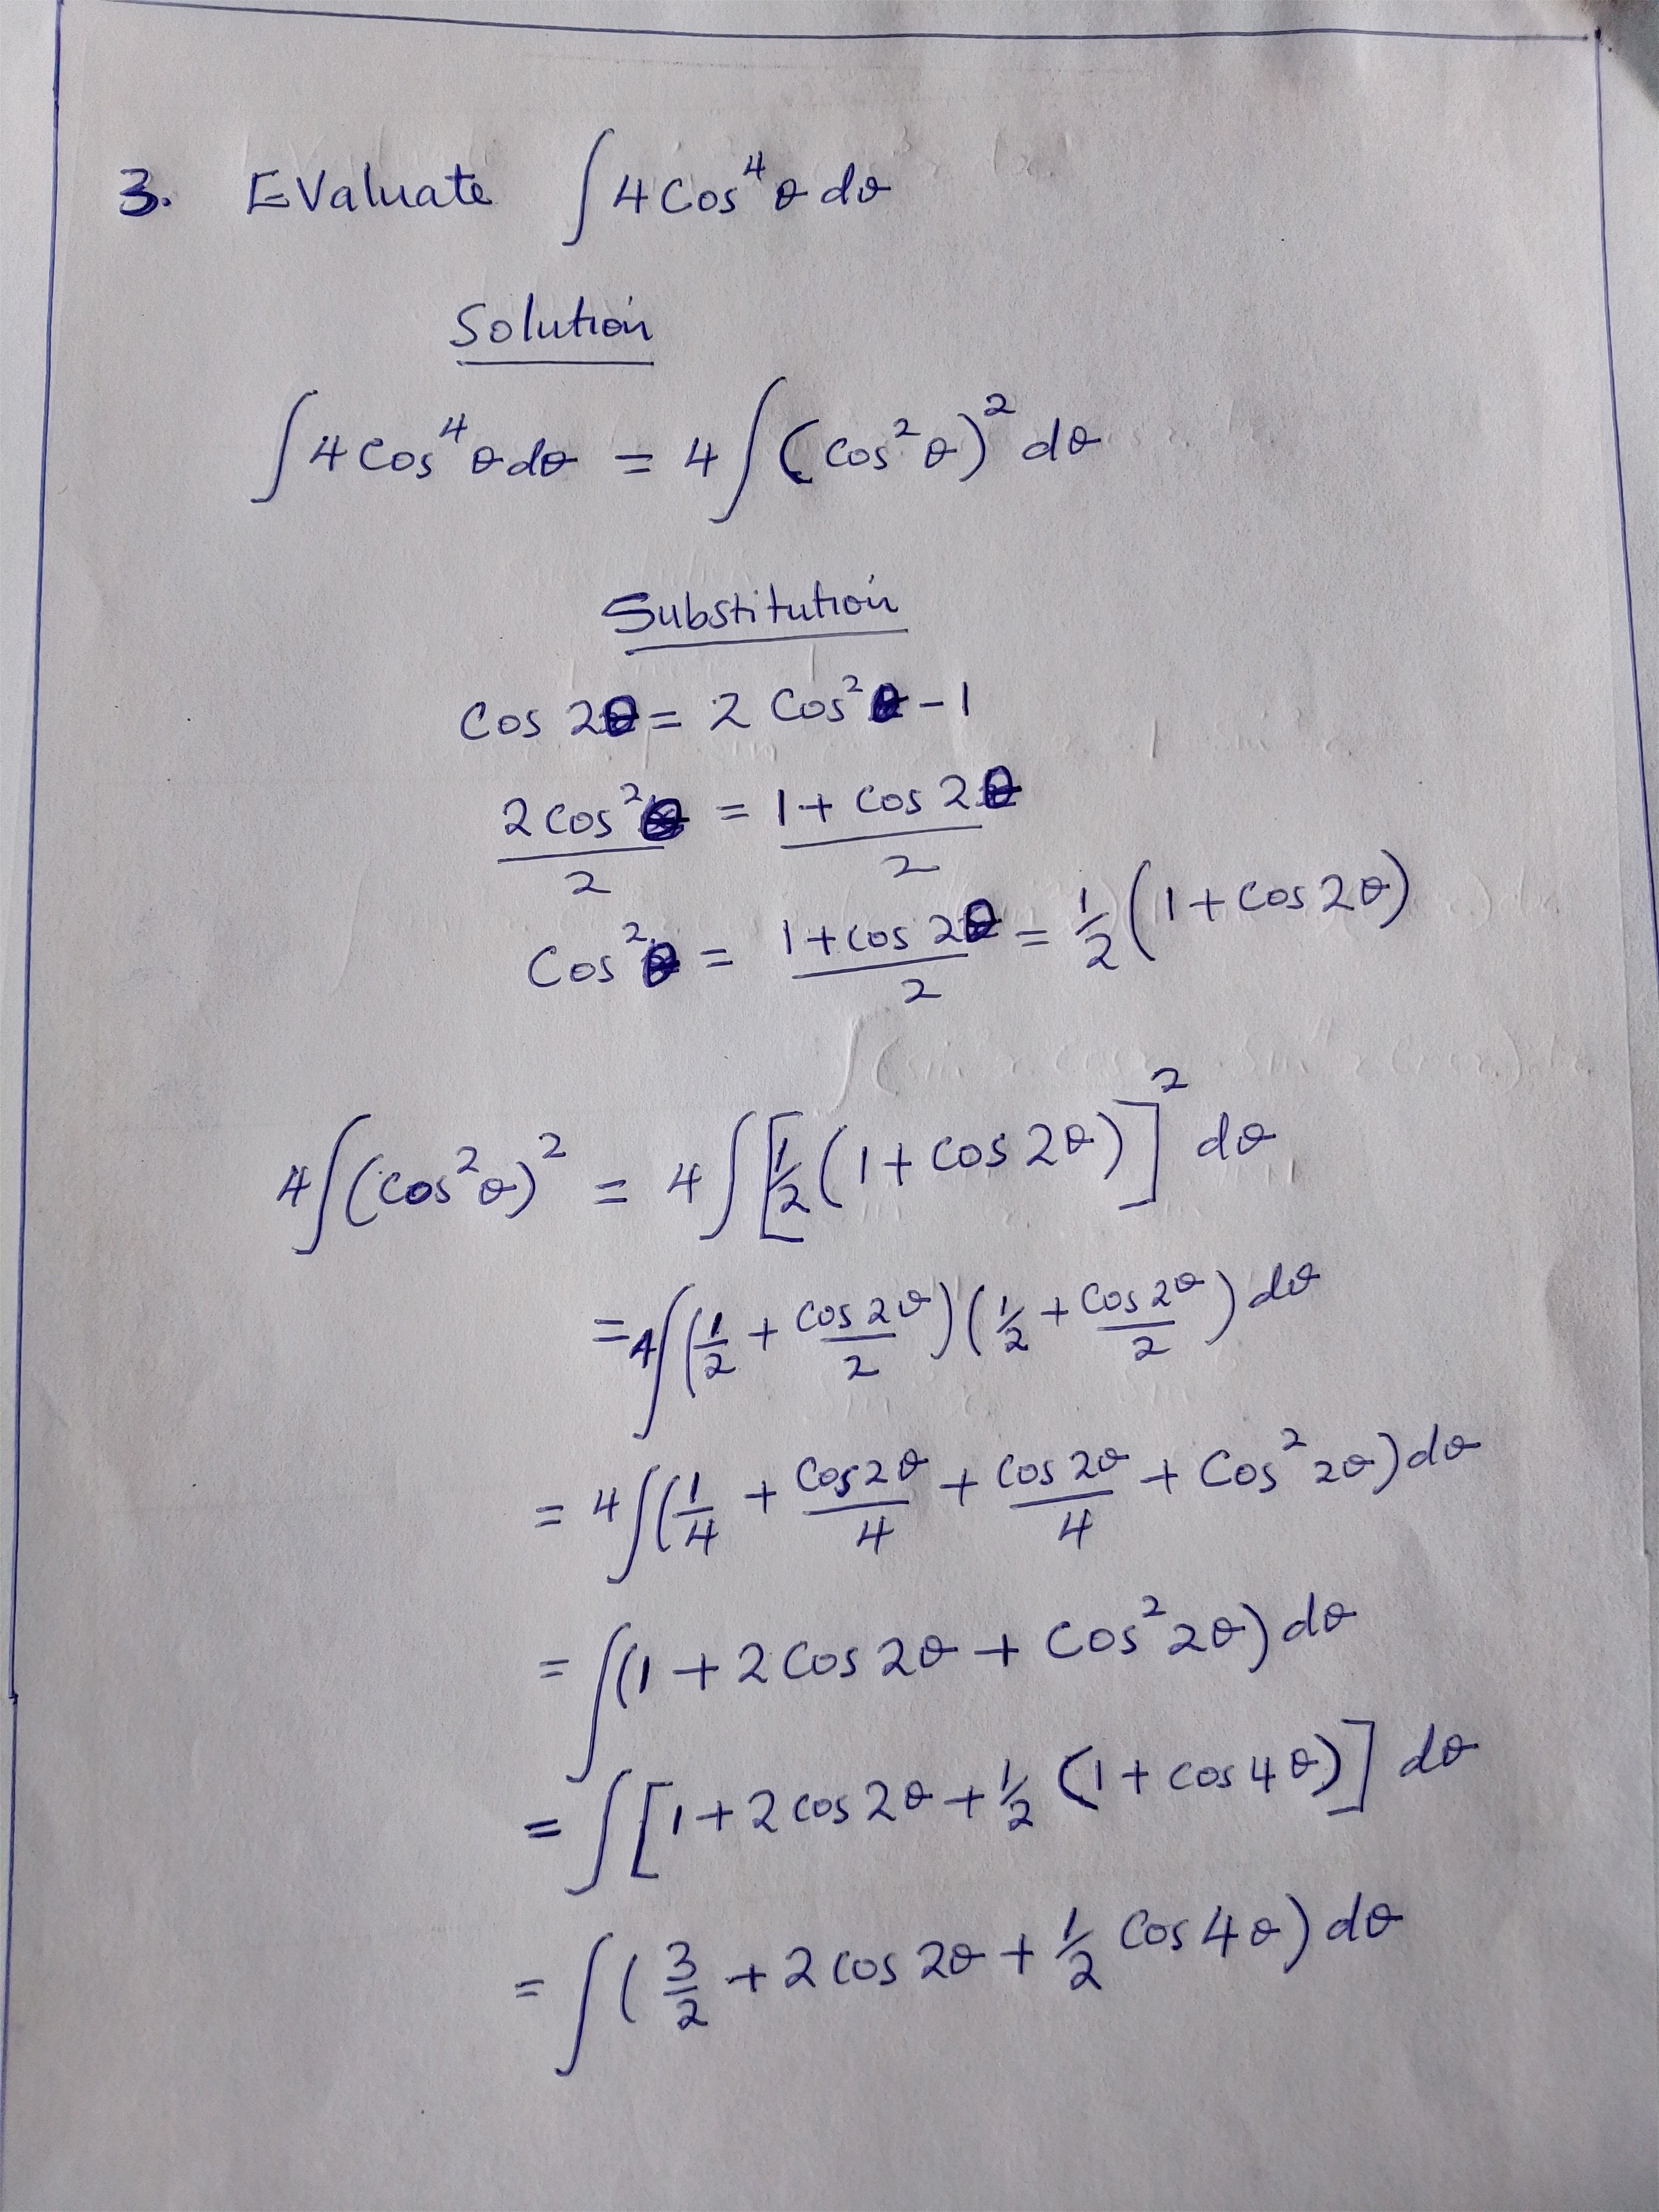 3. Evaluate ∫ 4 Cos⁴θ dθ
Solution
∫ 4 Cos⁴θ dθ = 4 ∫ (Cos²θ)² dθ
Substitution
Cos 2θ = 2 Cos²θ - 1
2 Cos²θ/2 = (1 + Cos 2θ)/2
Cos²θ = (1 + Cos 2θ)/2 = ½ (1 + Cos 2θ)
4 ∫ (Cos²θ)² = 4 ∫ [½ (1 + Cos 2θ)]² dθ
= 4 ∫ (½ + Cos 2θ/2) (½ + Cos 2θ/2) dθ
= 4 ∫ (¼ + Cos 2θ/4 + Cos 2θ/4 + Cos² 2θ) dθ
= ∫ (1 + 2 Cos 2θ + Cos² 2θ) dθ
= ∫ [1 + 2 Cos 2θ + ½ (1 + Cos 4θ)] dθ
= ∫ (3/2 + 2 Cos 2θ + ½ Cos 4θ) dθ